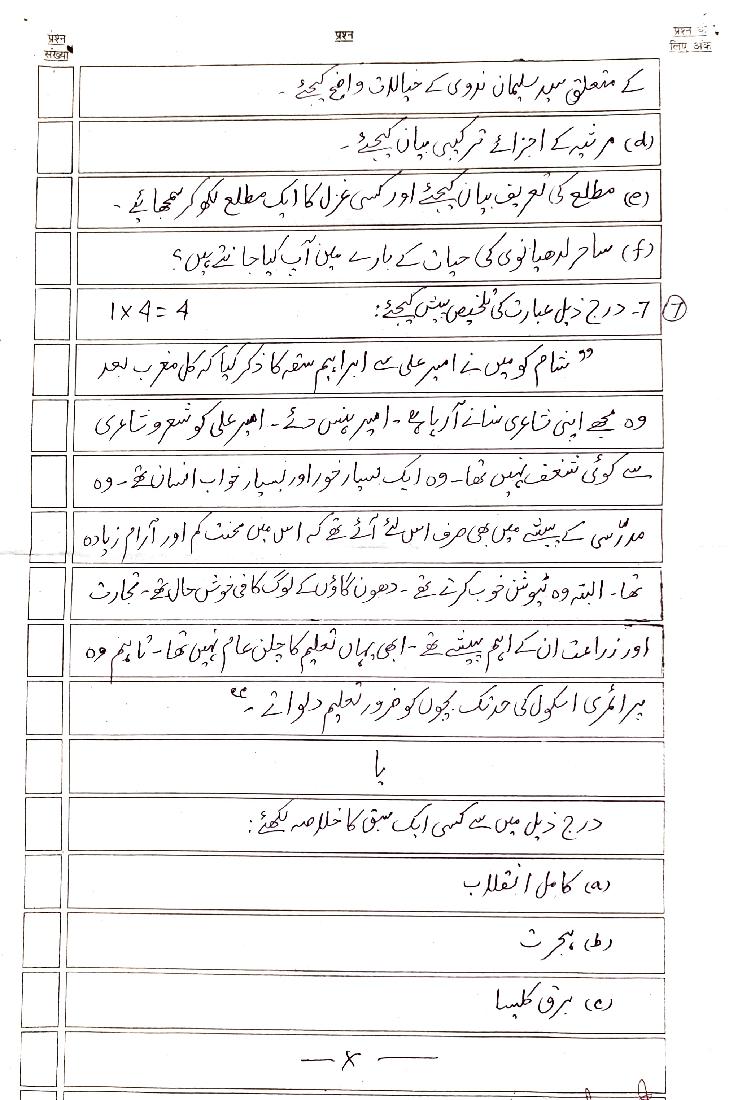 प्रश्न संख्या
प्रश्न
प्रश्न के लिए अंक
کے متعلق سید سلیمان ندوی کے خیالات واضح کیجئے ۔
(d) مرثیہ کے اجزائے ترکیبی بیان کیجئے ۔
(e) مطلع کی تعریف بیان کیجئے اور کسی غزل کا ایک مطلع لکھ کر سمجھائیے ۔
(f) ساحر لدھیانوی کی حیات کے بارے میں آپ کیا جانتے ہیں؟
7 7۔ درج ذیل عبارت کی تلخیص پیش کیجئے: 1 x 4 = 4
”شام کو میں نے امیر علی سے ابراہیم سقہ کا ذکر کیا کہ کل مغرب بعد
وہ مجھے اپنی شاعری سنانے آ رہا ہے ۔ امیر ہنس دئے ۔ امیر علی کو شعر و شاعری
سے کوئی شغف نہیں تھا ۔ وہ ایک بسیار خور اور بسیار خواب انسان تھے ۔ وہ
مدرّسی کے پیشے میں بھی صرف اس لئے آئے تھے کہ اس میں محنت کم اور آرام زیادہ
تھا ۔ البتہ وہ ٹیوشن خوب کرتے تھے ۔ دھون گاؤں کے لوگ کافی خوش حال تھے ۔ تجارت
اور زراعت ان کے اہم پیشے تھے ۔ ابھی یہاں تعلیم کا چلن عام نہیں تھا ۔ تاہم وہ
پرائمری اسکول کی حد تک بچوں کو ضرور تعلیم دلواتے ۔“
یا
درج ذیل میں سے کسی ایک سبق کا خلاصہ لکھئے:
(a) کامل انقلاب
(b) ہجرت
(c) برق کلیسا
— x —